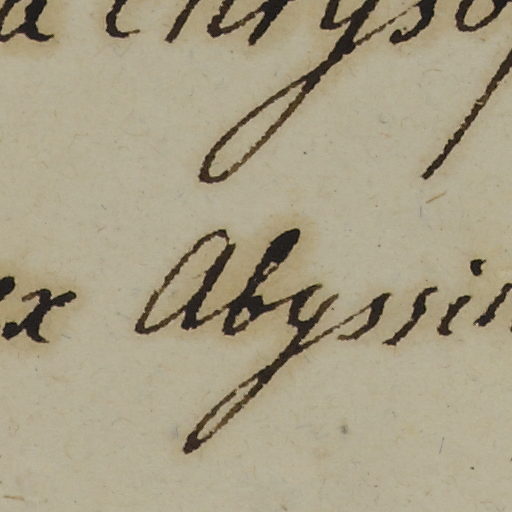 a Chryso
ex Abyssin